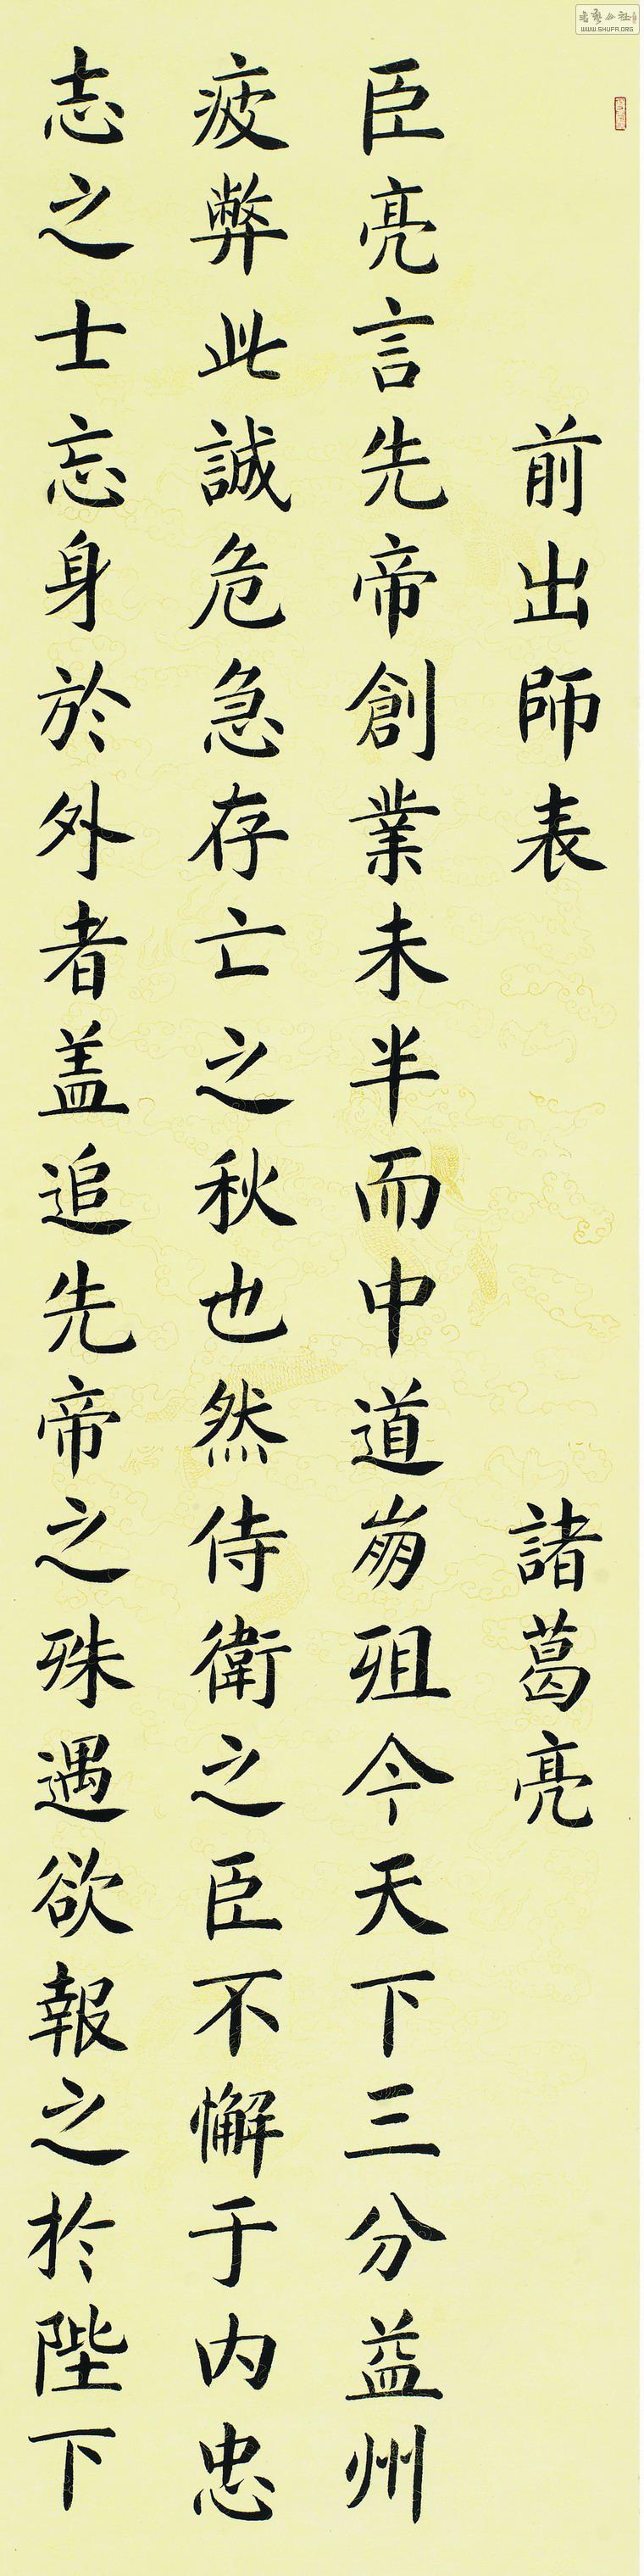 前出師表 諸葛亮
臣亮言先帝創業未半而中道崩殂今天下三分益州
疲弊此誠危急存亡之秋也然侍衛之臣不懈于内忠
志之士忘身於外者盖追先帝之殊遇欲報之於陛下
WWW.SHUFA.ORG